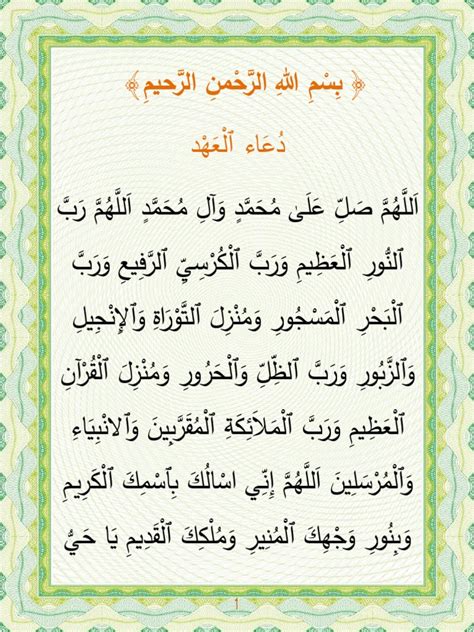 ﴿ بِسْمِ اللهِ الرَّحْمنِ الرَّحيمِ ﴾
دُعَاء ٱلْعَهْد
اَللَّهُمَّ صَلِّ عَلَىٰ مُحَمَّدٍ وَآلِ مُحَمَّدٍ اَللَّهُمَّ رَبَّ
ٱلنُّورِ ٱلْعَظِيمِ وَرَبَّ ٱلْكُرْسِيِّ ٱلرَّفِيعِ وَرَبَّ
ٱلْبَحْرِ ٱلْمَسْجُورِ وَمُنْزِلَ ٱلتَّوْرَاةِ وَٱلإِنْجِيلِ
وَٱلزَّبُورِ وَرَبَّ ٱلظِّلِّ وَٱلْحَرُورِ وَمُنْزِلَ ٱلْقُرْآنِ
ٱلْعَظِيمِ وَرَبَّ ٱلْمَلاَئكَةِ ٱلْمُقَرَّبِينَ وَٱلانْبِيَاءِ
وَٱلْمُرْسَلِينَ اَللَّهُمَّ إِنِّي اسْالُكَ بِٱسْمِكَ ٱلْكَرِيمِ
وَبِنُورِ وَجْهِكَ ٱلْمُنِيرِ وَمُلْكِكَ ٱلْقَدِيمِ يَا حَيُّ
1